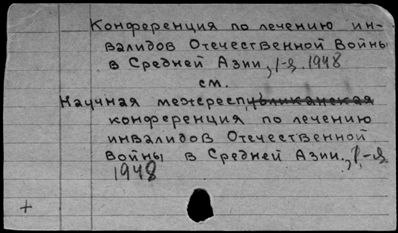 Конференция по лечению ин-
валидов Отечественной Войны
в Средней Азии, 1-я. 1948
см.
Научная межреспубликанская
конференция по лечению
инвалидов Отечественной
Войны в Средней Азии., 1-я
1948
+